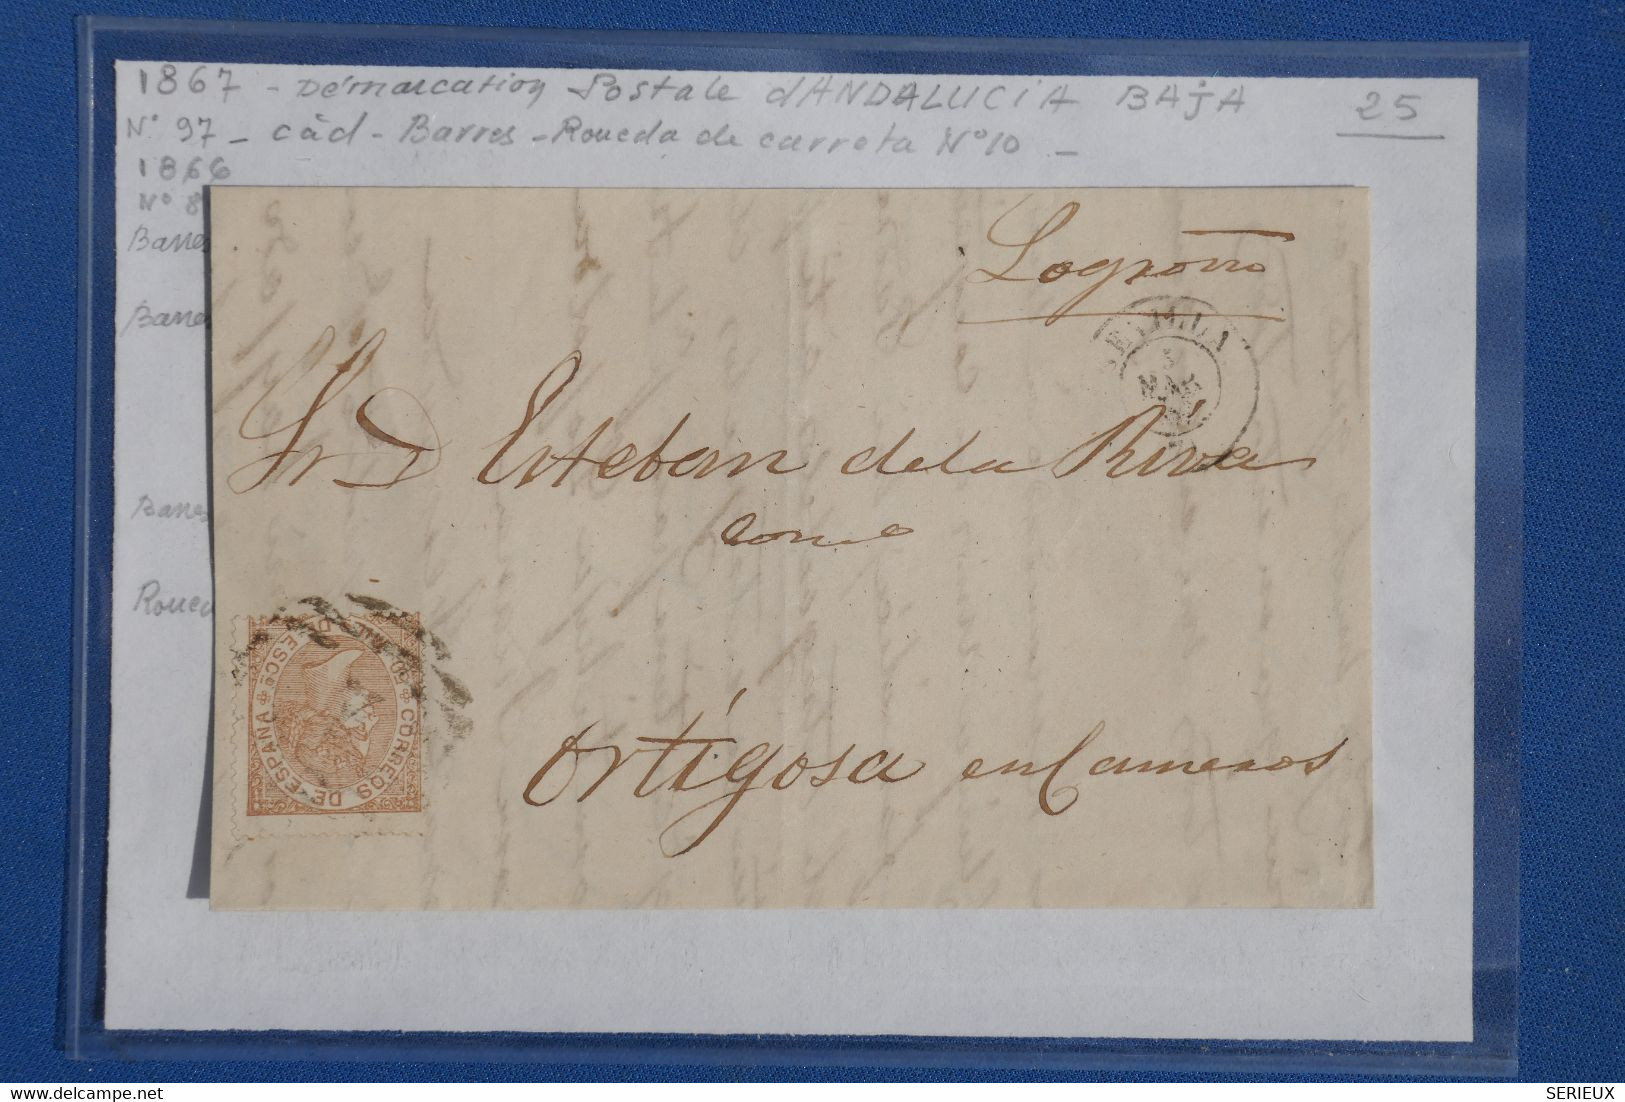 1867 - Démarcation Postale d'ANDALUCIA BAjA 25
N° 97 - càd - Barres - Roueda de carreta N° 10 -
1866
N° 8
Barres
Barres
Barres
Roueda
Logroño
SEVILLA
5
MAR
Sr D Esteban de la Riva
Ortigosa en Cameros
CORREOS DE ESPAÑA
50 MIL
DE ESCO
SERIEUX